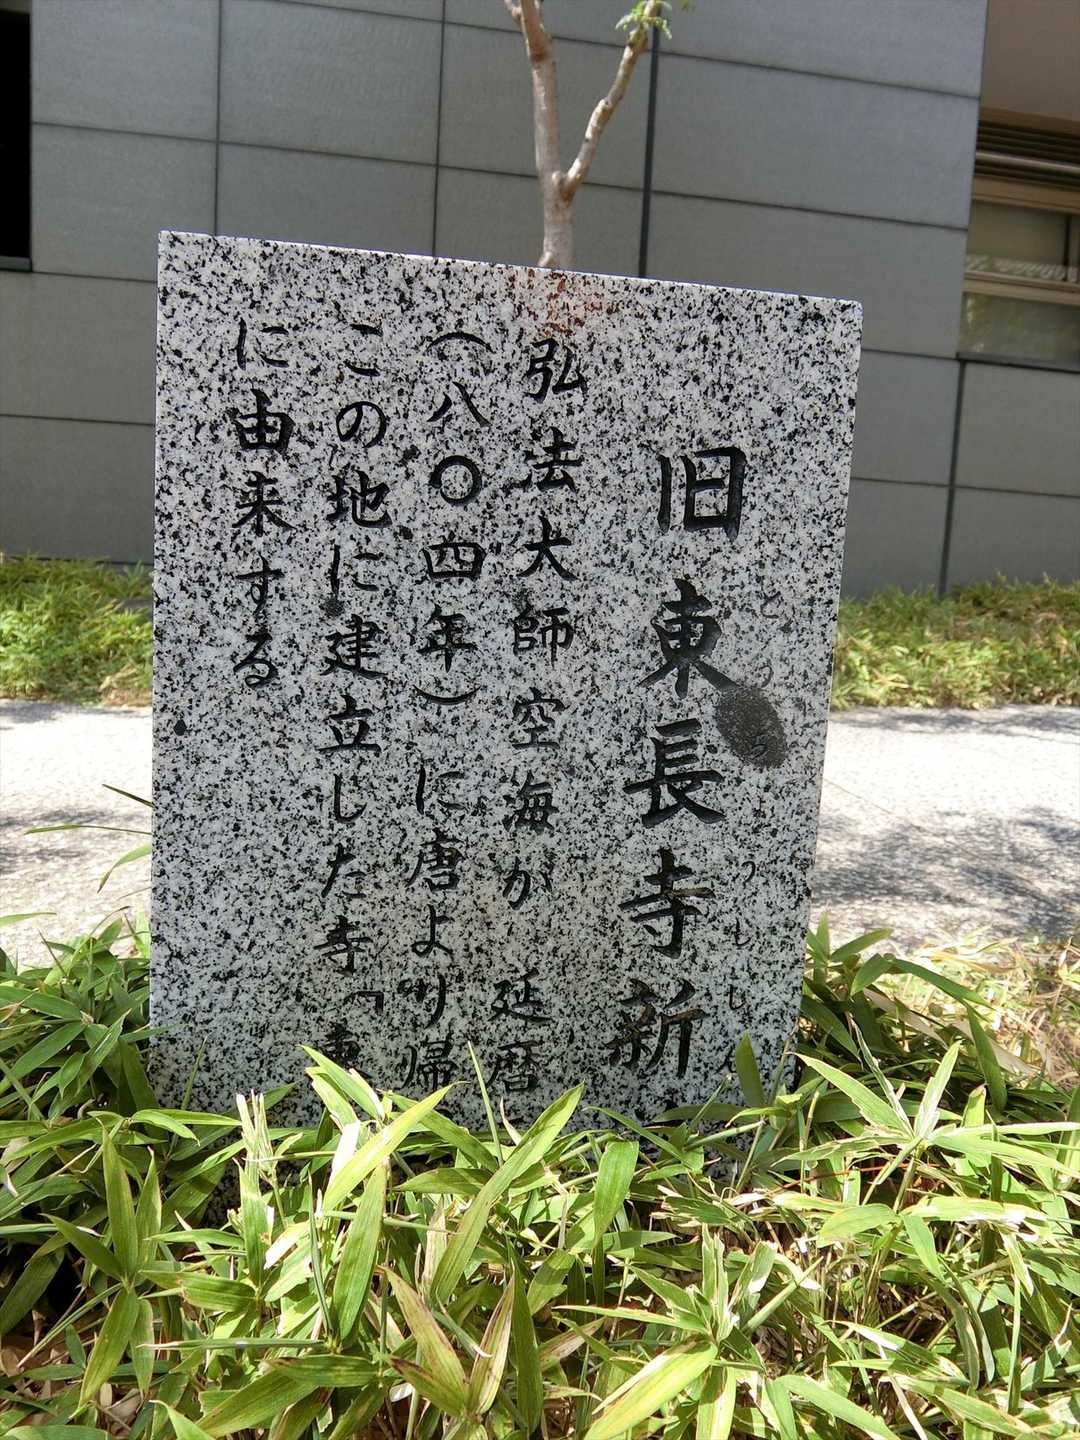 旧東長寺新
とうちょうじしん
弘法大師空海が 延暦
(八〇四年)に唐より帰
この地に建立した寺「東
に由来する